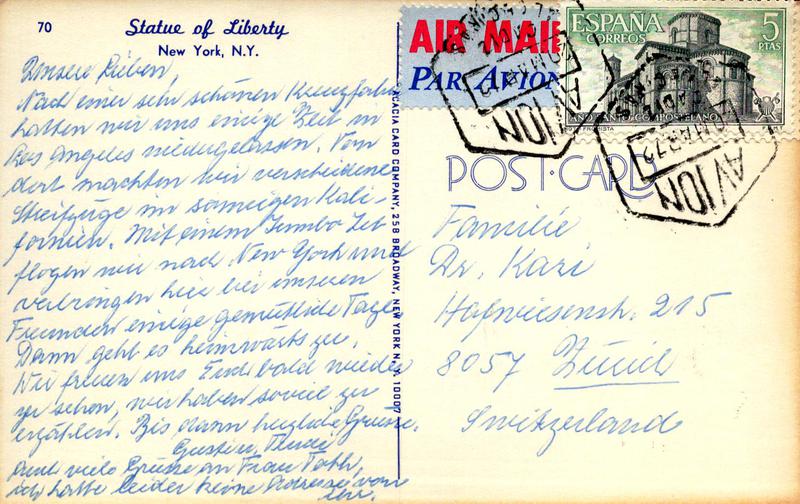 70
Statue of Liberty
New York, N.Y.
Unsere Lieben,
Nach einer sehr schönen Kreuzfahrt
hatten wir uns einige Zeit in
Los Angeles niedergelassen. Von
dort machten wir verschiedene
Streifzüge im sonnigen Kali-
fornien. Mit einem Jumbo Jet
flogen wir nach New York und
verbringen hier bei unseren
Freunden einige gemütliche Tage.
Dann geht es heimwärts zu.
Wir freuen uns Euch bald wieder
zu sehen, wir haben soviel zu
erzählen. Bis dann herzliche Grüsse.
und viele Grüsse an Frau
ich hatte leider keine Adresse von
ihr.
ACACIA CARD COMPANY, 258 BROADWAY, NEW YORK N.Y. 10007
AIR MAIL
PAR AVION
ESPAÑA
CORREOS
5
PTAS
AÑO SANTO COMPOSTELANO
AVION
AVION
POST CARD
Familie
Dr. Kari
Hofwiesenstr. 215
8057 Zürich
Switzerland